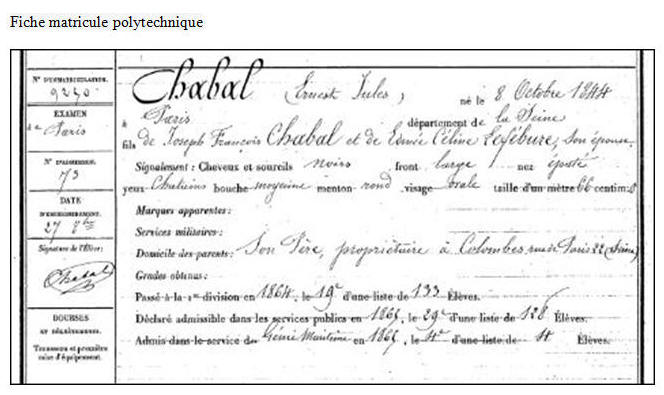 Fiche matricule polytechnique
N° D'IMMATRICULATION.
9240
EXAMEN
de Paris
N° D'ADMISSION.
73
DATE
D'ENREGISTREMENT.
27 8bre
Signature de l'Élève:
Chabal
BOURSES
Trousseau et première
mise d'équipement.
Chabal (Ernest Jules) né le 8 Octobre 1844
à Paris département de la Seine
fils de Joseph François Chabal et de Edmée Céline Lefébure, son épouse.
Signalement: Cheveux et sourcils noirs front large nez épaté
yeux Châtains bouche moyenne menton rond visage ovale taille d'un mètre 66 centim:
Marques apparentes:
Services militaires:
Domicile des parents: Son Père, propriétaire à Colombes rue de Paris 22 (Seine)
Grades obtenus:
Passé à la 1re division en 1864, le 19e d'une liste de 133 Élèves.
Déclaré admissible dans les services publics en 1865, le 29e d'une liste de 128 Élèves.
Admis dans le service du Génie Maritime en 1865, le 4e d'une liste de 4 Élèves.